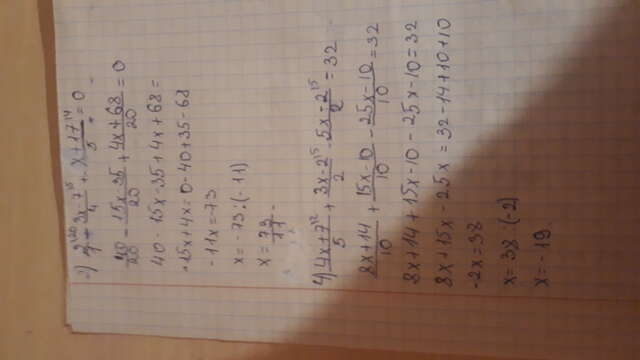 3) 2/1 ²⁰ - 3x-7/4 ⁵ + x+17/5 ⁴ = 0
40/20 - 15x-35/20 + 4x+68/20 = 0
40 - 15x - 35 + 4x + 68 =
-15x + 4x = 0 - 40 + 35 - 68
-11x = -73
x = -73 : (-11)
x = 73/11
4) 4x+7/5 ² + 3x-2/2 ⁵ - 5x-2/2 ⁵ = 32
8x+14/10 + 15x-10/10 - 25x-10/10 = 32
8x + 14 + 15x - 10 - 25x - 10 = 32
8x + 15x - 25x = 32 - 14 + 10 + 10
-2x = 38
x = 38 : (-2)
x = -19